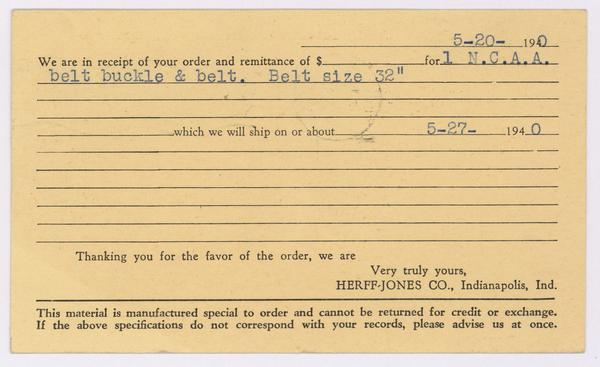 5-20- 1940
We are in receipt of your order and remittance of $ for 1 N.C.A.A.
belt buckle & belt. Belt size 32"
which we will ship on or about 5-27- 1940
Thanking you for the favor of the order, we are
Very truly yours,
HERFF-JONES CO., Indianapolis, Ind.
This material is manufactured special to order and cannot be returned for credit or exchange.
If the above specifications do not correspond with your records, please advise us at once.